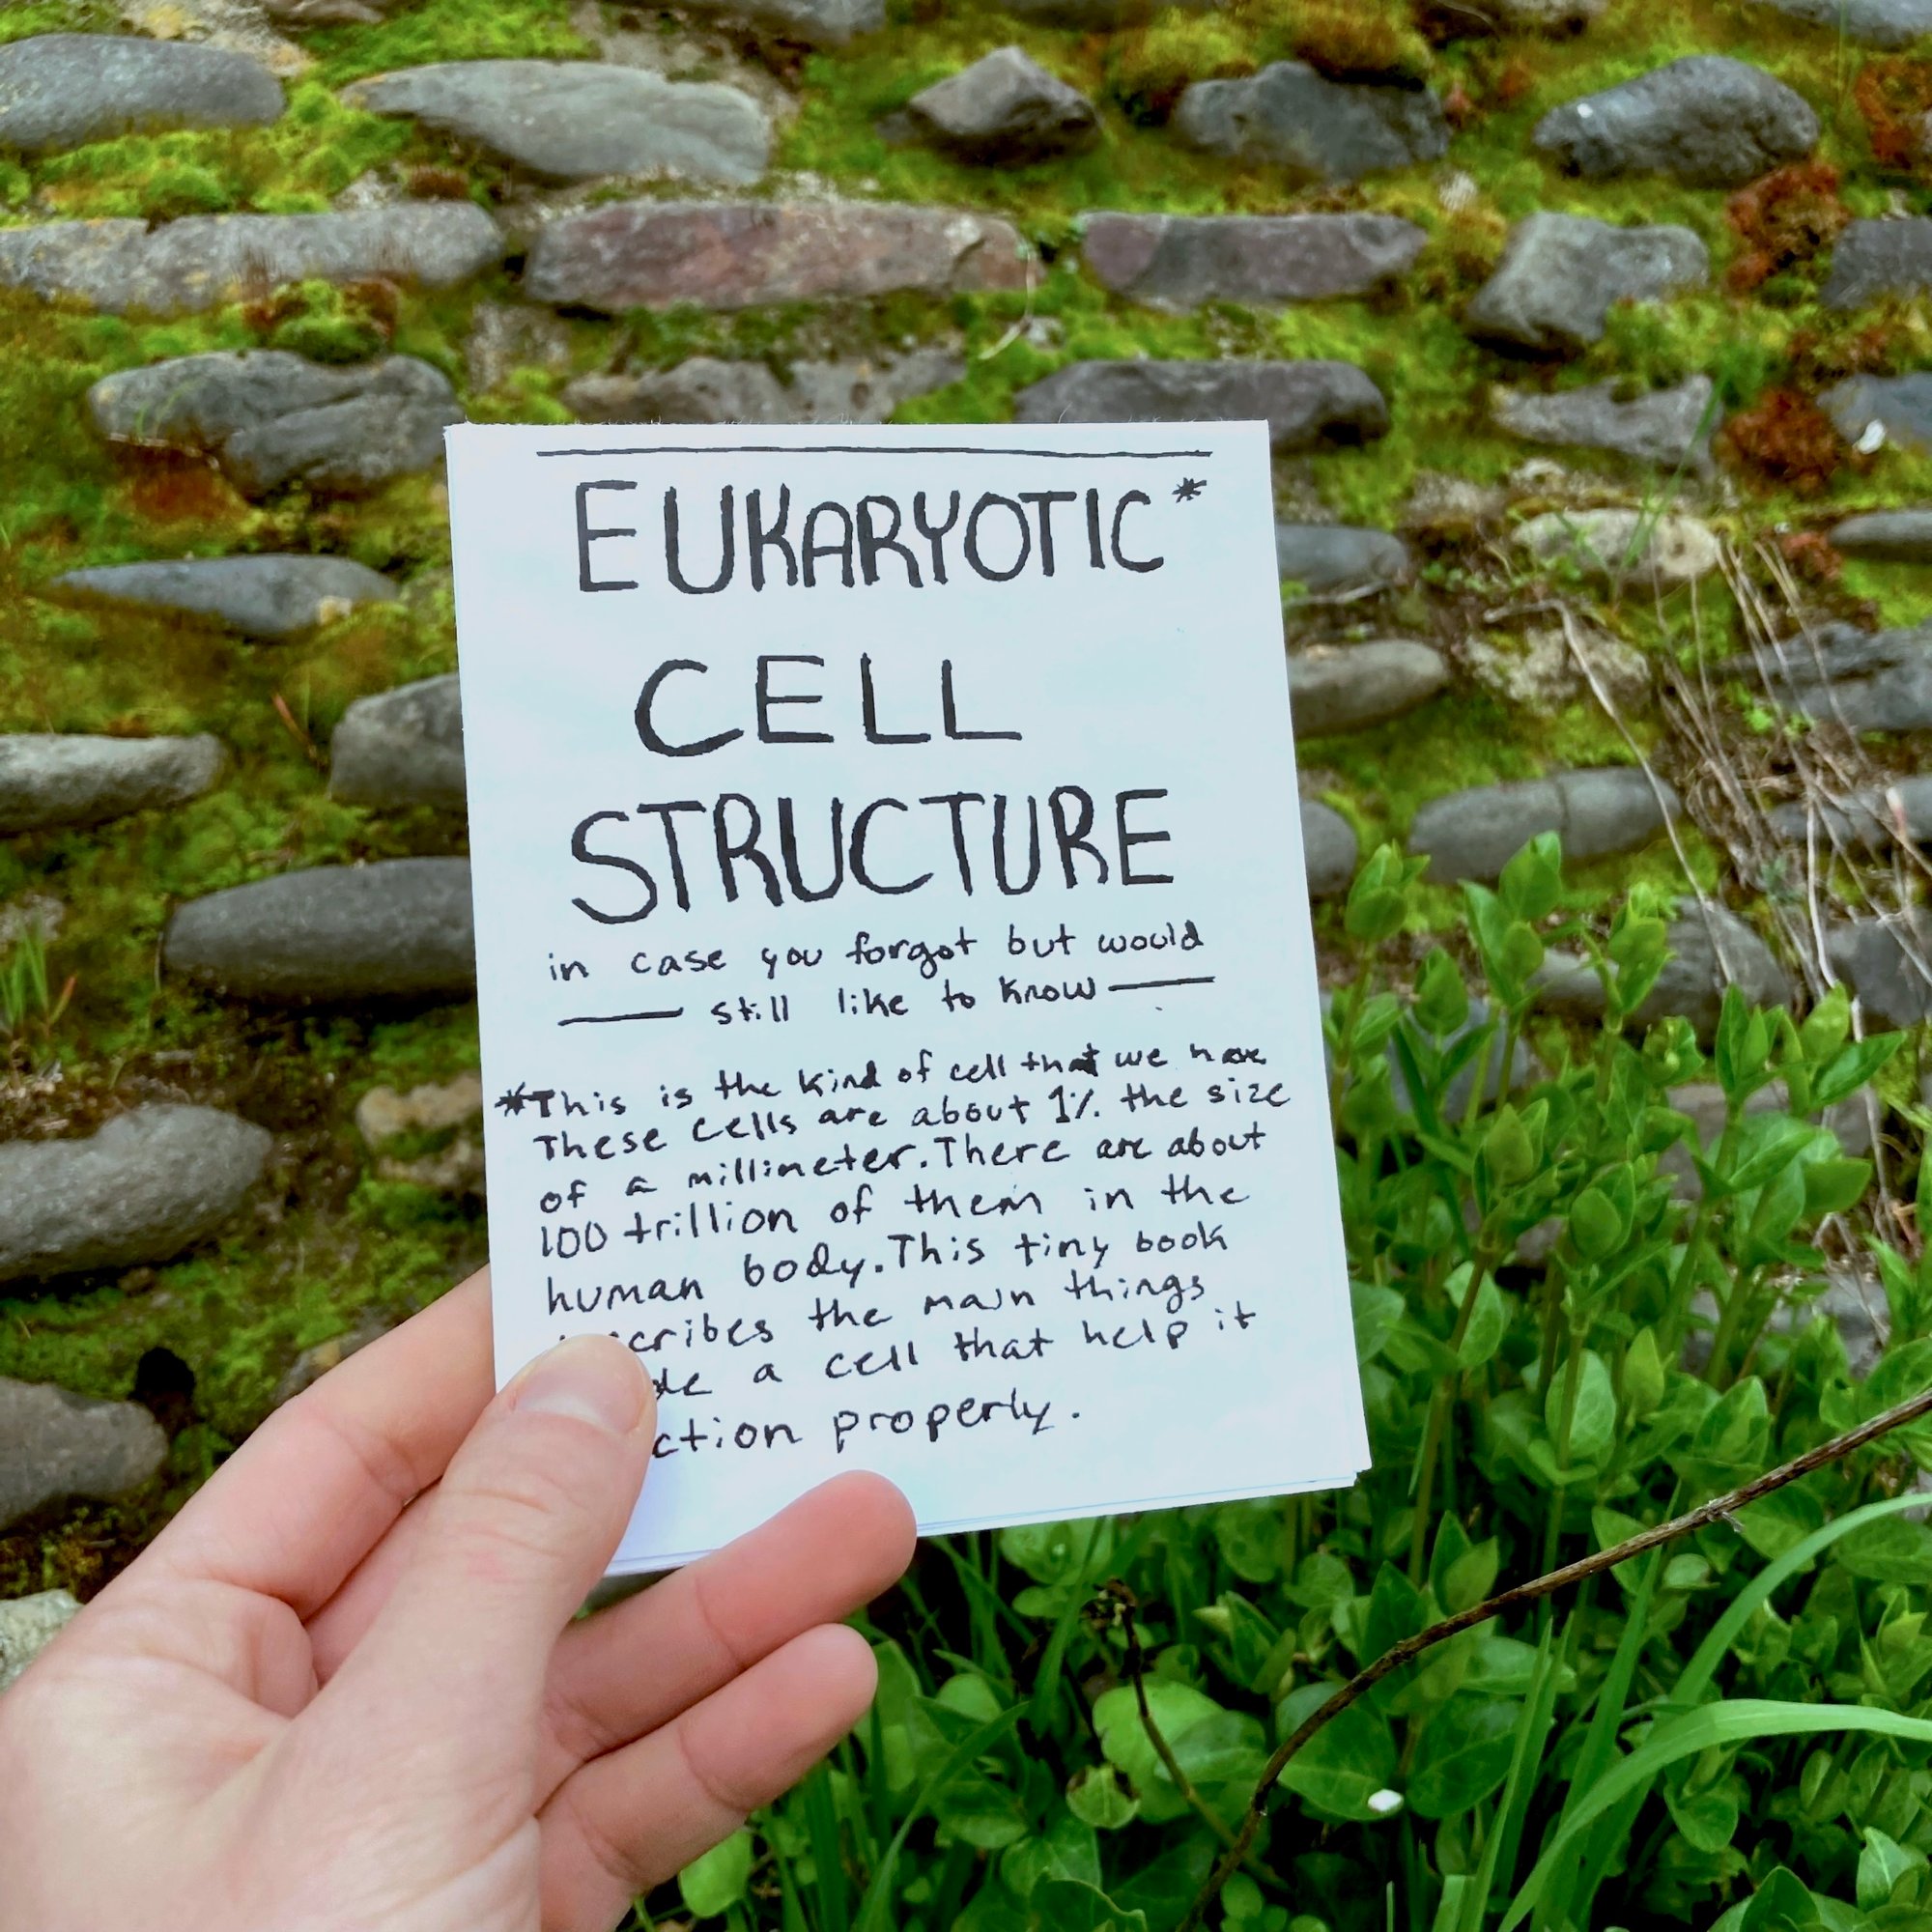 EUKARYOTIC*
CELL
STRUCTURE
in case you forgot but would
still like to know
*This is the kind of cell that we have
These cells are about 1% the size
of a millimeter. There are about
100 trillion of them in the
human body. This tiny book
the main things
a cell that help it
properly.